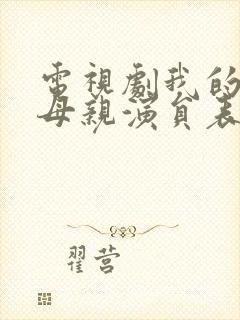 電視劇我的
母親演員表
翟营